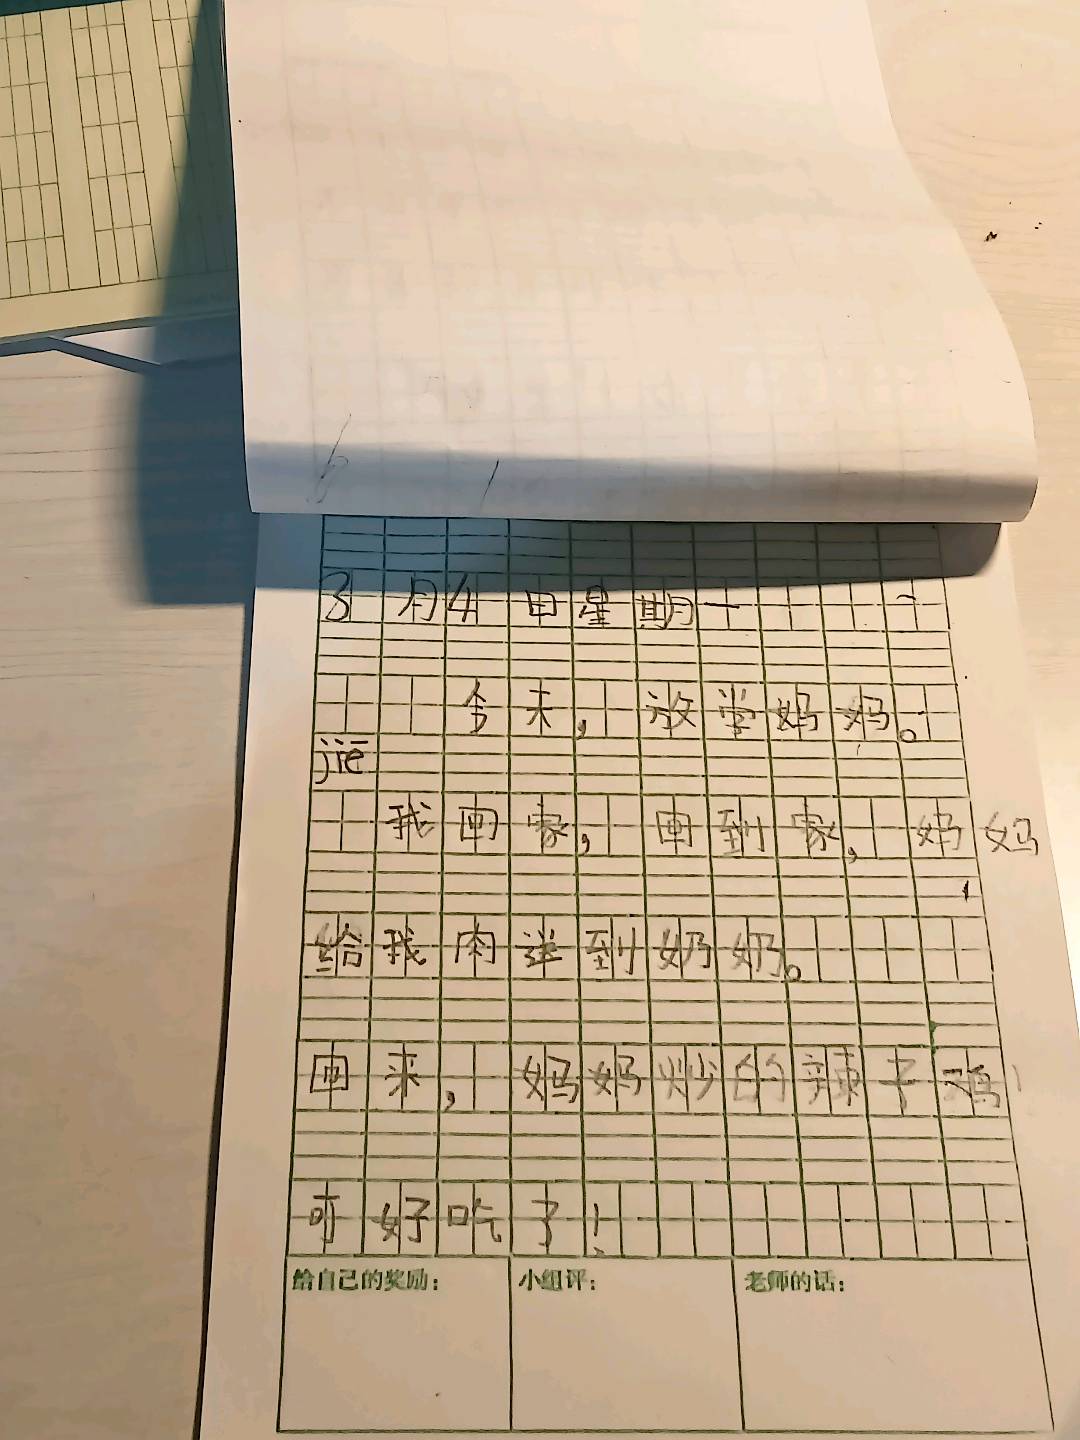 3月4日星期一
今天,放学妈妈。
jiē
我回家,回到家,妈妈
给我肉送到奶奶。
回来,妈妈炒的辣子鸡
可好吃了!
给自己的奖励:
小组评:
老师的话: